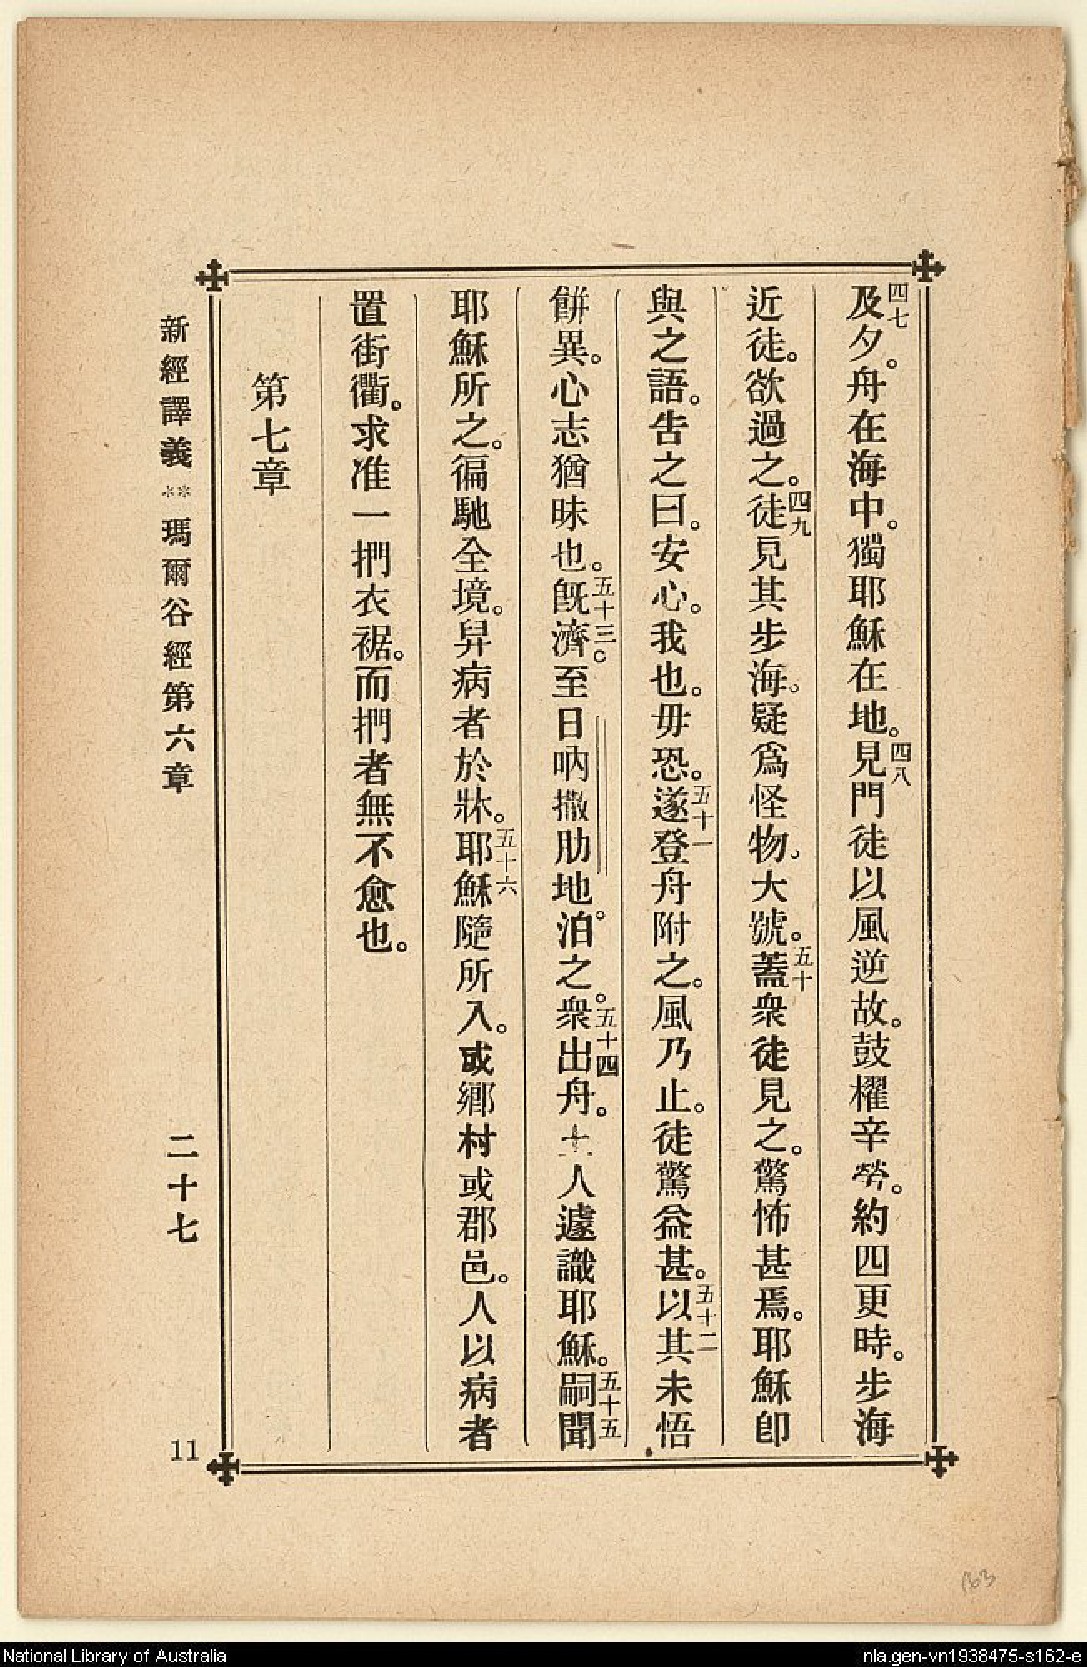 四七及夕。舟在海中。獨耶穌在地。四八見門徒以風逆故。鼓櫂辛勞。約四更時。步海
近徒。欲過之。四九徒見其步海。疑爲怪物。大號。五十蓋衆徒見之。驚怖甚焉。耶穌卽
與之語。吿之曰。安心。我也。毋恐。五十一遂登舟附之。風乃止。徒驚益甚。五十二以其未悟
餅異。心志猶昧也。五十三旣濟。至日吶撒肋地。泊之。五十四衆出舟。土人遽識耶穌。五十五嗣聞
耶穌所之。徧馳全境。舁病者於牀。五十六耶穌隨所入。或鄉村或郡邑。人以病者
置街衢。求准一捫衣裾。而捫者無不愈也。
第七章
新經譯義⁎⁎瑪爾谷經第六章 二十七
11
163
National Library of Australia
nla.gen-vn1938475-s162-e